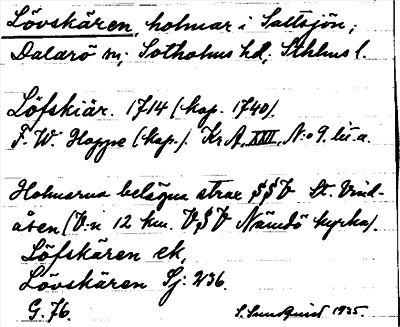 Lövskären, holmar i Saltsjön;
Dalarö sn; Sotholms hd; Sthlms l.
Löfskiär. 1714 (kop. 1740).
F. W. Hoppe (kop.). Kr A, XXII, N:o 9. lit. a.
Holmarna belägna strax SSV St. Vind-
åsen (V.n 12 km. VSV Nämdö kyrka).
Löfskären ek,
Lövskären Sj: 236.
G. 76. S. Sundquist 1935.